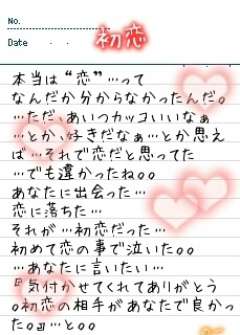 No.
初恋
Date . .
本当は“恋”…って
なんだか分からなかったんだ。
…ただ、あいつカッコいいなぁ
…とか、好きだなぁ…とか思え
ば…それで恋だと思ってた
…でも違かったね。。
あなたに出会った…
恋に落ちた…
それが…初恋だった…
初めて恋の事で泣いた。。
…あなたに言いたい…
『気付かせてくれてありがとう
。初恋の相手があなたで良かっ
た。』…と。。